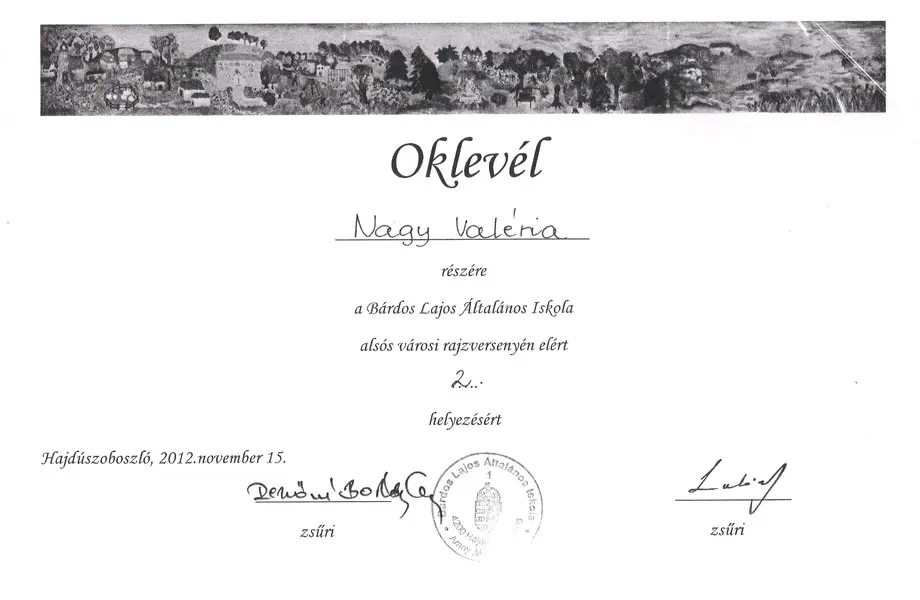 Oklevél
Nagy Valéria
részére
a Bárdos Lajos Általános Iskola
alsós városi rajzversenyén elért
2...
helyezésért
Hajdúszoboszló, 2012.november 15.
Bárdos Lajos Általános Iskola
1
4200
Arany
zsűri
zsűri